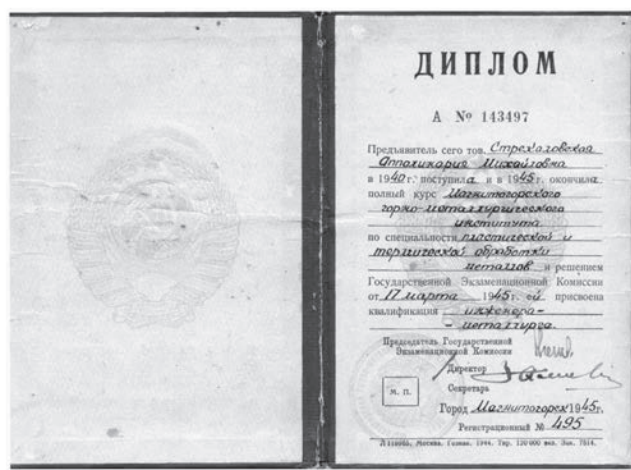 ДИПЛОМ
А № 143497
Предъявитель сего тов. Стрехаловская
Аполинария Михайловна
в 1940 г. поступила и в 1945 г. окончила
полный курс Магнитогорского
горно-металлургического
института
по специальности пластической и
термической обработки
металлов и решением
Государственной Экзаменационной Комиссии
от 17 марта 1945 г. ей присвоена
квалификация инженера-
-металлурга.
Председатель Государственной
Экзаменационной Комиссии
Директор
М. П.
Секретарь
Город Магнитогорск 1945 г.
Регистрационный № 495
Москва. Гознак. 1944.